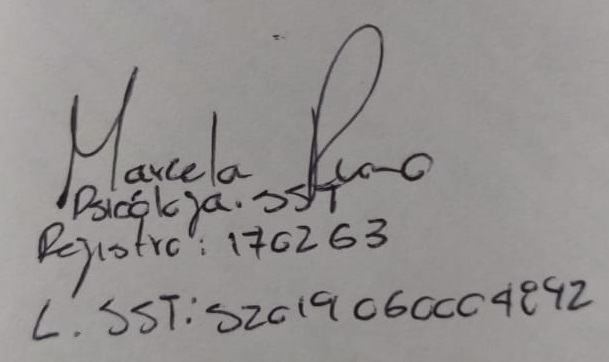 Marcela
Psicóloga. SST
Registro: 170263
L. SST: S2019060004892